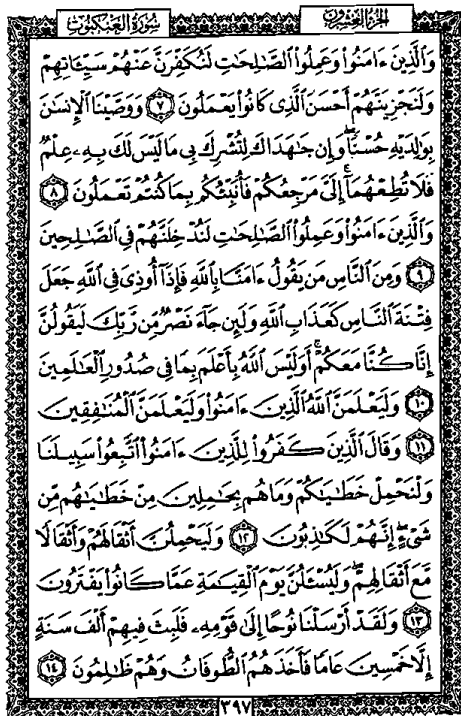 الجزء العشرون سورة العنكبوت
وَالَّذِينَ ءَامَنُوا وَعَمِلُوا الصَّـٰلِحَـٰتِ لَنُكَفِّرَنَّ عَنْهُمْ سَيِّـَٔاتِهِمْ
وَلَنَجْزِيَنَّهُمْ أَحْسَنَ الَّذِى كَانُوا يَعْمَلُونَ ٧ وَوَصَّيْنَا الْإِنسَـٰنَ
بِوَٰلِدَيْهِ حُسْنًا ۖ وَإِن جَـٰهَدَاكَ لِتُشْرِكَ بِى مَا لَيْسَ لَكَ بِهِۦ عِلْمٌ
فَلَا تُطِعْهُمَا ۚ إِلَىَّ مَرْجِعُكُمْ فَأُنَبِّئُكُم بِمَا كُنتُمْ تَعْمَلُونَ ٨
وَالَّذِينَ ءَامَنُوا وَعَمِلُوا الصَّـٰلِحَـٰتِ لَنُدْخِلَنَّهُمْ فِى الصَّـٰلِحِينَ
٩ وَمِنَ النَّاسِ مَن يَقُولُ ءَامَنَّا بِاللَّهِ فَإِذَا أُوذِىَ فِى اللَّهِ جَعَلَ
فِتْنَةَ النَّاسِ كَعَذَابِ اللَّهِ وَلَئِن جَآءَ نَصْرٌ مِّن رَّبِّكَ لَيَقُولُنَّ
إِنَّا كُنَّا مَعَكُمْ ۚ أَوَلَيْسَ اللَّهُ بِأَعْلَمَ بِمَا فِى صُدُورِ الْعَـٰلَمِينَ
١٠ وَلَيَعْلَمَنَّ اللَّهُ الَّذِينَ ءَامَنُوا وَلَيَعْلَمَنَّ الْمُنَـٰفِقِينَ
١١ وَقَالَ الَّذِينَ كَفَرُوا لِلَّذِينَ ءَامَنُوا اتَّبِعُوا سَبِيلَنَا
وَلْنَحْمِلْ خَطَـٰيَـٰكُمْ وَمَا هُم بِحَـٰمِلِينَ مِنْ خَطَـٰيَـٰهُم مِّن
شَىْءٍ ۖ إِنَّهُمْ لَكَـٰذِبُونَ ١٢ وَلَيَحْمِلُنَّ أَثْقَالَهُمْ وَأَثْقَالًا
مَّعَ أَثْقَالِهِمْ ۖ وَلَيُسْـَٔلُنَّ يَوْمَ الْقِيَـٰمَةِ عَمَّا كَانُوا يَفْتَرُونَ
١٣ وَلَقَدْ أَرْسَلْنَا نُوحًا إِلَىٰ قَوْمِهِۦ فَلَبِثَ فِيهِمْ أَلْفَ سَنَةٍ
إِلَّا خَمْسِينَ عَامًا فَأَخَذَهُمُ الطُّوفَانُ وَهُمْ ظَـٰلِمُونَ ١٤
٣٩٧